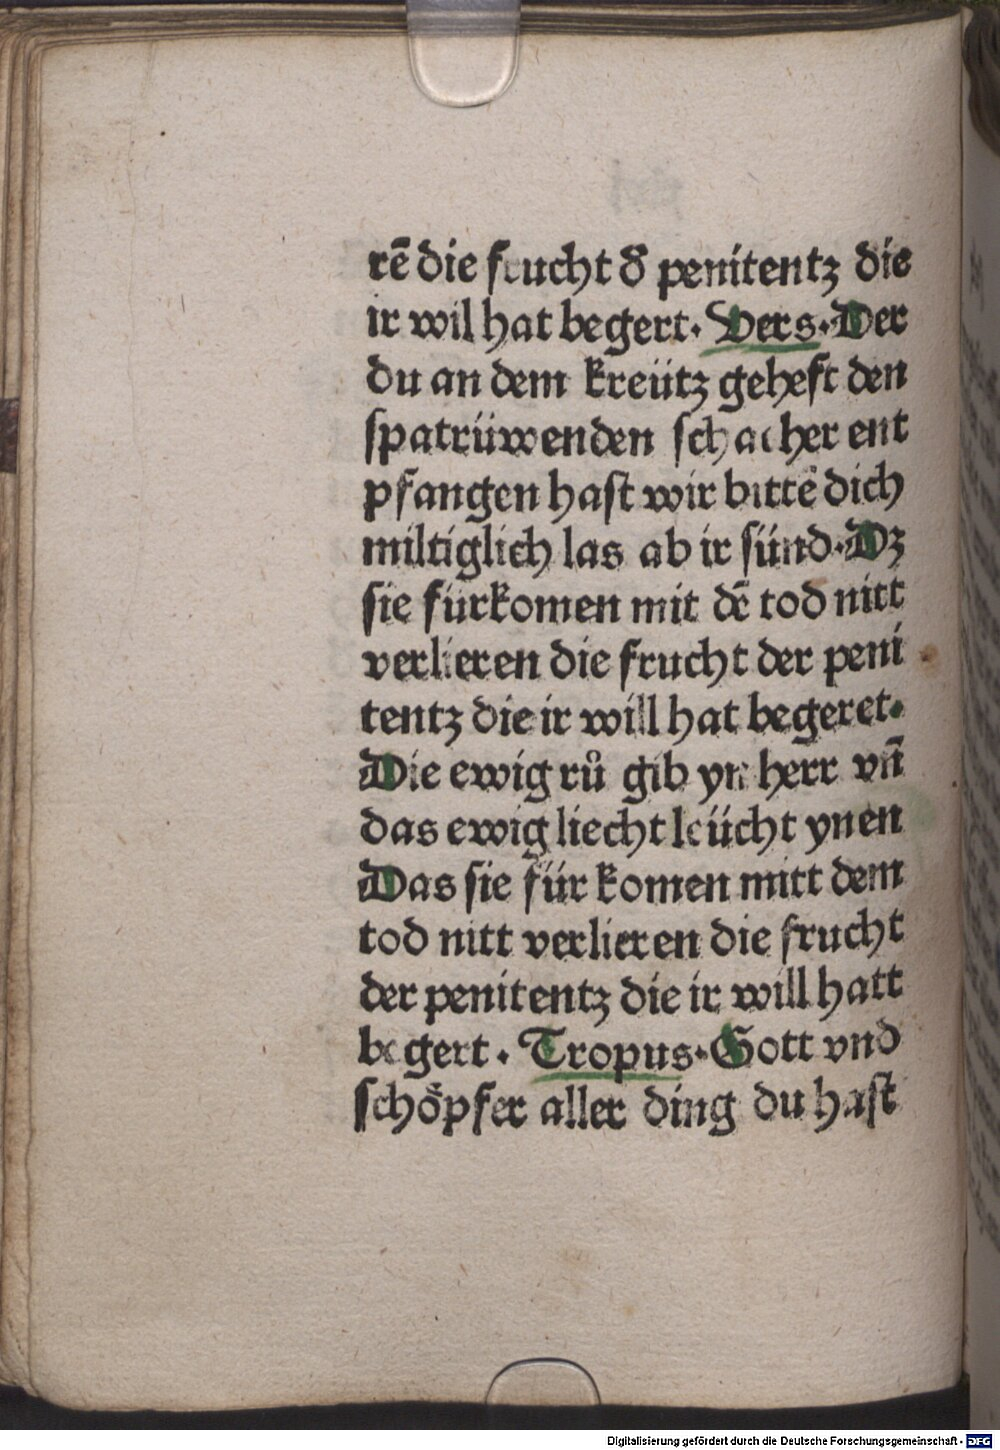 rē die frucht d̕ penitentz die
ir wil hat begert. Vers. Der
du an dem kreütz geheft den
spatrüwenden schacher ent
pfangen hast wir bittē dich
miltiglich las ab ir sünd. Dz
sie fürkomen mit dē tod nitt
verlieren die frucht der peni
tentz die ir will hat begeret.
Die ewig rů gib yn herr vñ
das ewig liecht leücht ynen
Das sie für komen mitt dem
tod nitt verlieren die frucht
der penitentz die ir will hatt
begert. Tropus. Gott vnd
schöpfer aller ding du hast
Digitalisierung gefördert durch die Deutsche Forschungsgemeinschaft - DFG